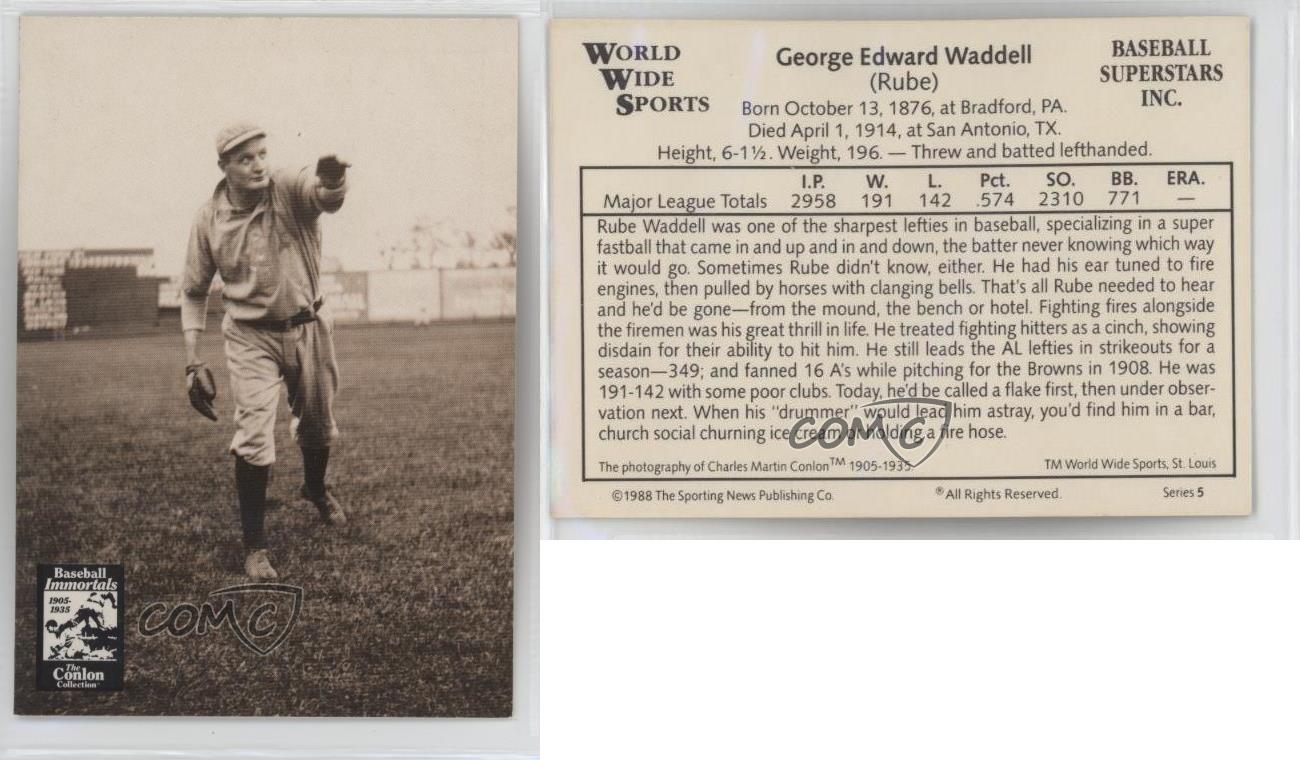 Baseball
Immortals
1905-
1935
The
Conlon
Collection
COMC
WORLD
WIDE
SPORTS
George Edward Waddell
(Rube)
BASEBALL
SUPERSTARS
INC.
Born October 13, 1876, at Bradford, PA.
Died April 1, 1914, at San Antonio, TX.
Height, 6-1½. Weight, 196. — Threw and batted lefthanded.
I.P. W. L. Pct. SO. BB. ERA.
Major League Totals 2958 191 142 .574 2310 771 —
Rube Waddell was one of the sharpest lefties in baseball, specializing in a super
fastball that came in and up and in and down, the batter never knowing which way
it would go. Sometimes Rube didn't know, either. He had his ear tuned to fire
engines, then pulled by horses with clanging bells. That's all Rube needed to hear
and he'd be gone—from the mound, the bench or hotel. Fighting fires alongside
the firemen was his great thrill in life. He treated fighting hitters as a cinch, showing
disdain for their ability to hit him. He still leads the AL lefties in strikeouts for a
season—349; and fanned 16 A's while pitching for the Browns in 1908. He was
191-142 with some poor clubs. Today, he'd be called a flake first, then under obser-
vation next. When his "drummer" would lead him astray, you'd find him in a bar,
church social churning ice cream or holding a fire hose.
COMC
The photography of Charles Martin Conlon™ 1905-1935.
TM World Wide Sports, St. Louis
©1988 The Sporting News Publishing Co.
®All Rights Reserved.
Series 5